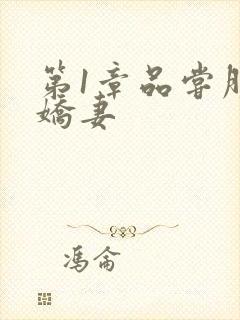 第1章品尝
娇妻
冯仑